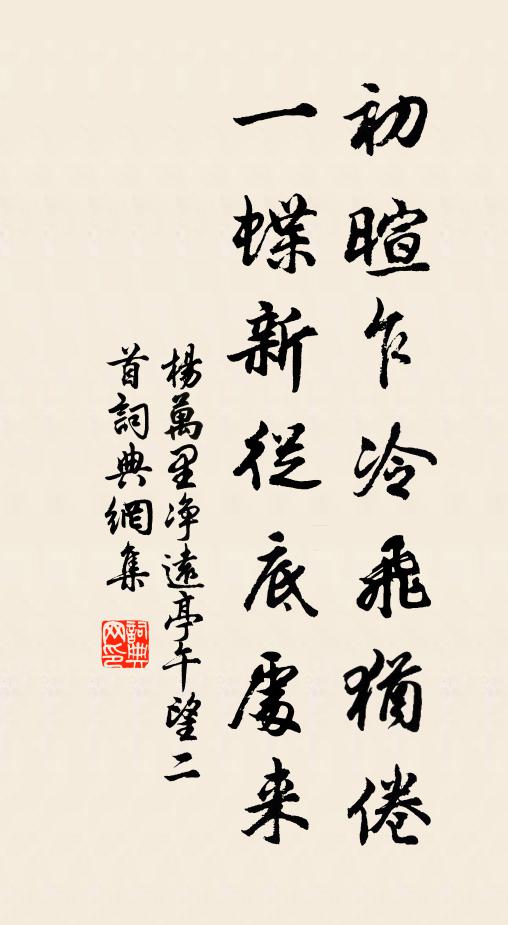 初暄乍冷飛猶倦
一蝶新從底處来
楊萬里淨遠亭午望二
首詞典網集
詞典网印